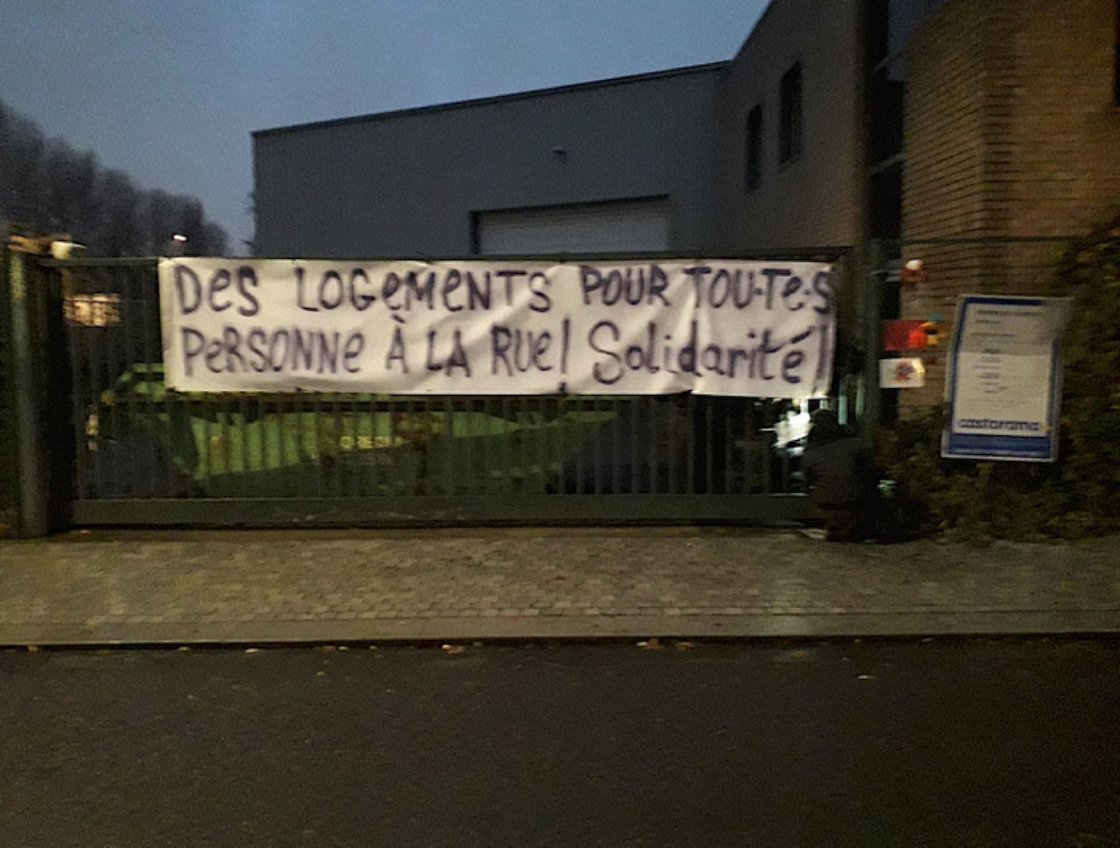 Des LOGeMeNTS POUR TOU·Te·S
PeRSONNe À LA RUe! Solidarité!
castorama